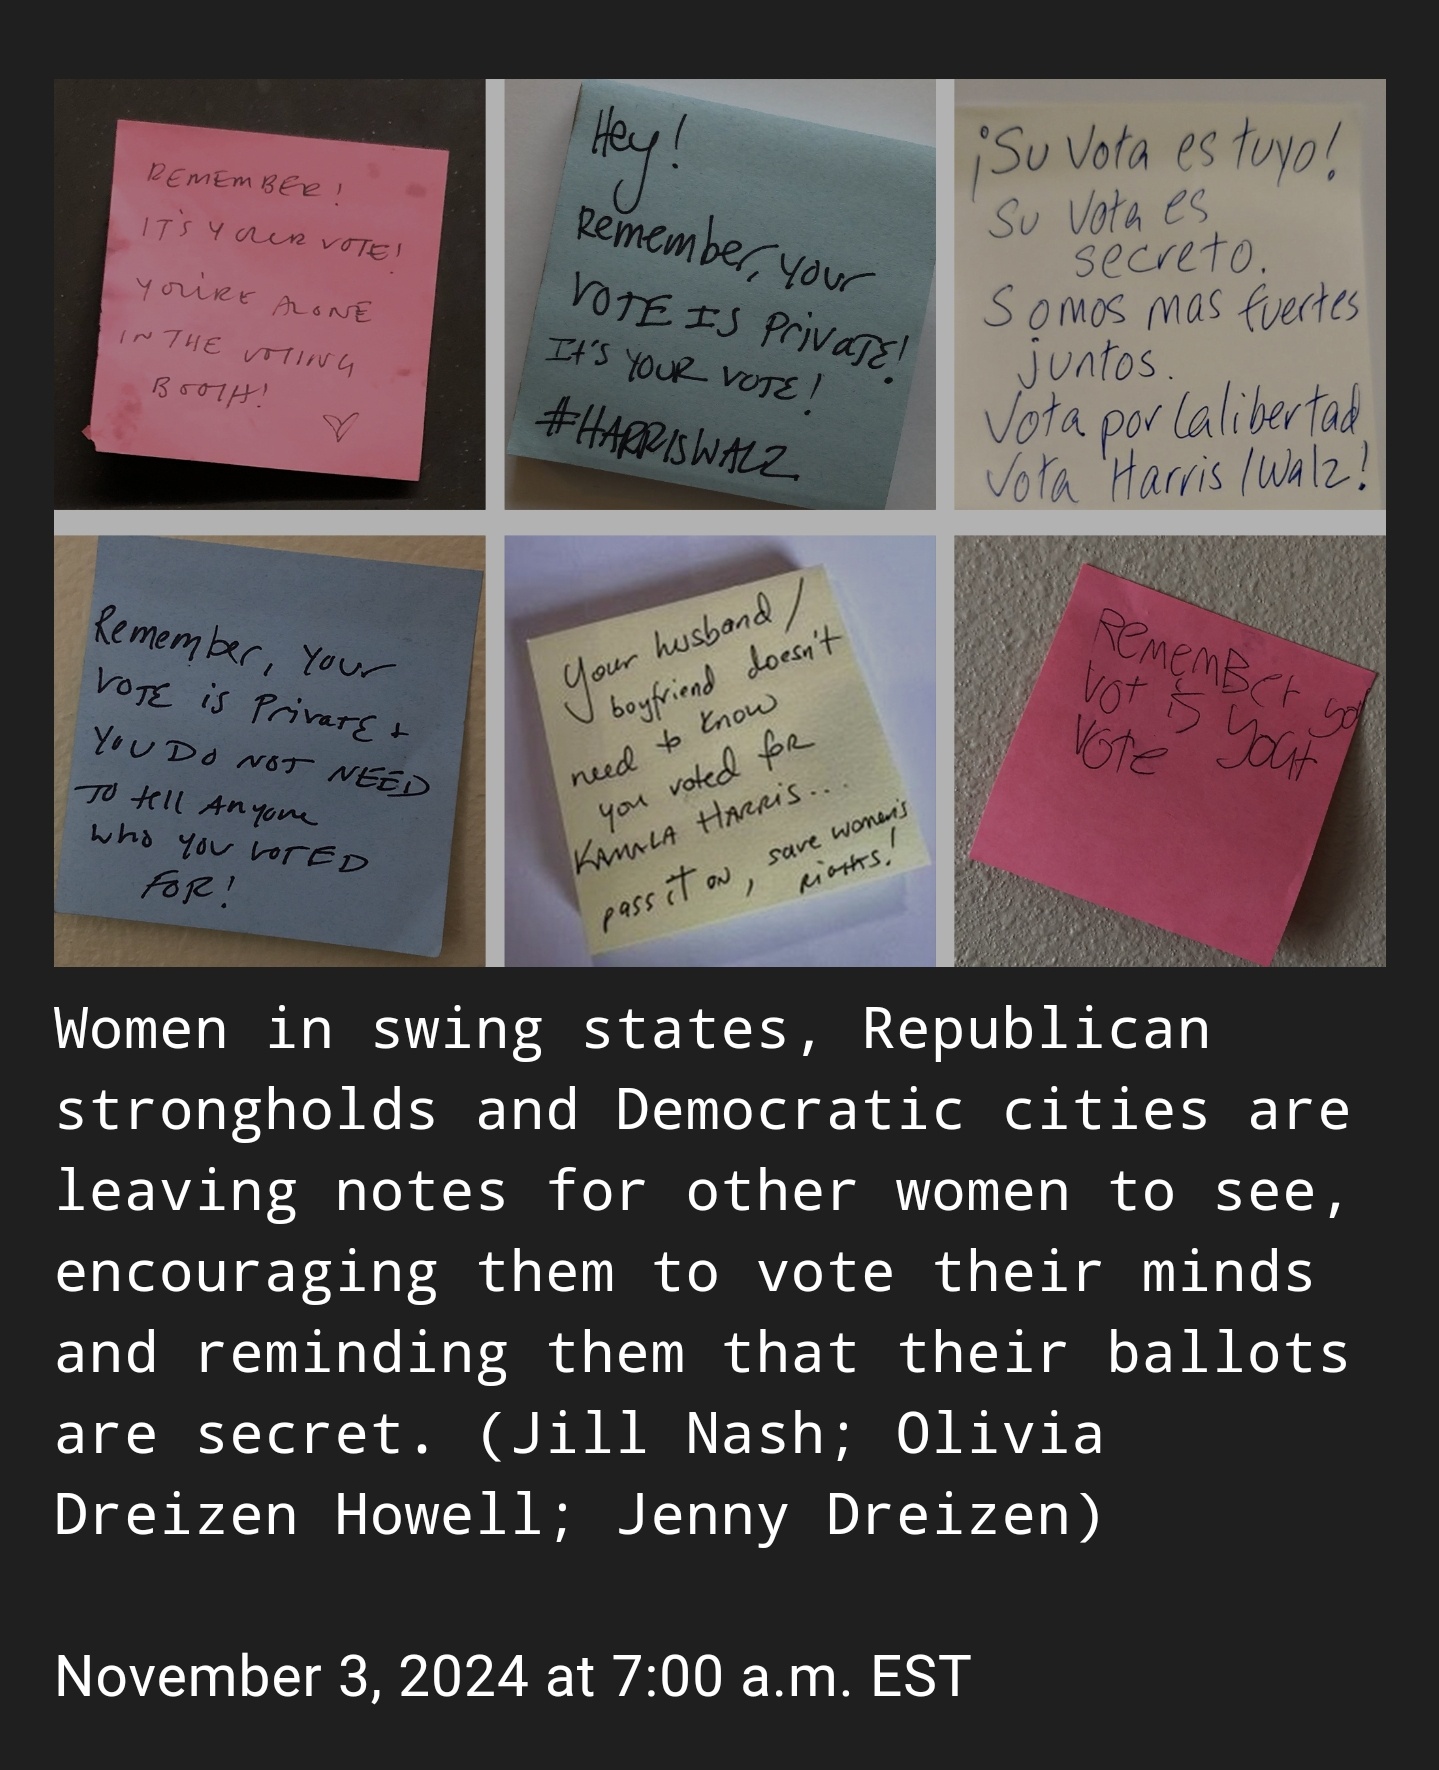 REMEMBER!
IT'S YOUR VOTE!
YOU'RE ALONE
IN THE VOTING
BOOTH!
Hey!
Remember, your
VOTE IS PrivaTE!
It's YOUR VOTE!
#HARRISWALZ
¡Su Vota es tuyo!
Su Vota es
secreto.
Somos mas fuertes
juntos.
Vota por la libertad
Vota Harris/Walz!
Remember, Your
VOTE is PrivatE +
YOU DO NOT NEED
TO tell Anyone
who you VOTED
FOR!
Your husband/
boyfriend doesn't
need to know
you voted for
KAMALA HARRIS...
pass it on, save women's
rights!
REmemBer yo
Vot is your
Vote
Women in swing states, Republican
strongholds and Democratic cities are
leaving notes for other women to see,
encouraging them to vote their minds
and reminding them that their ballots
are secret. (Jill Nash; Olivia
Dreizen Howell; Jenny Dreizen)
November 3, 2024 at 7:00 a.m. EST